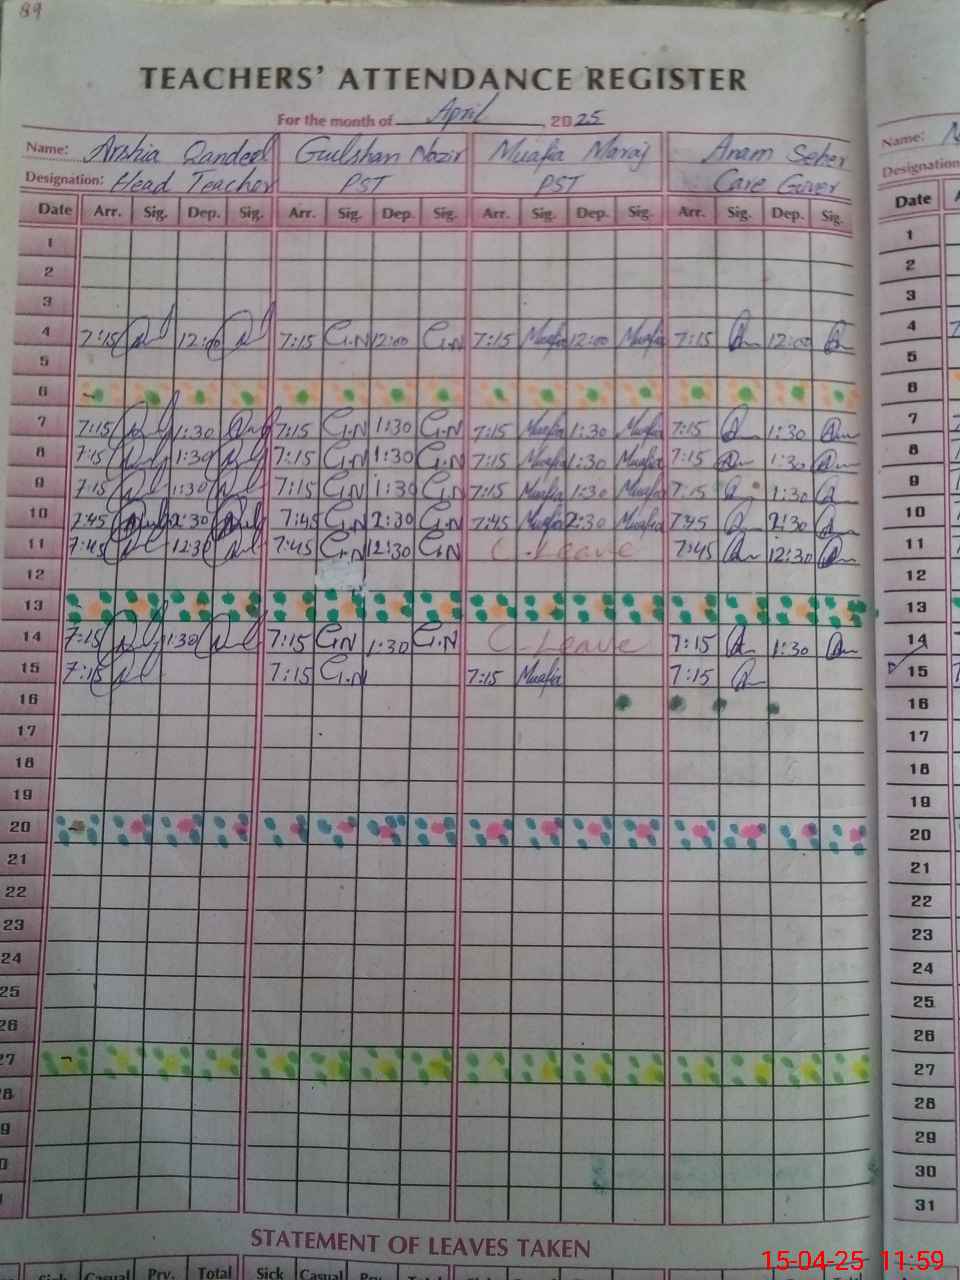 89
TEACHERS' ATTENDANCE REGISTER
For the month of April, 2025
Name: Arshia Qandeel Gulshan Nazir Muafia Maraj Anam Seher Name:
Designation: Head Teacher PST PST Care Giver Designation
Date Arr. Sig. Dep. Sig. Arr. Sig. Dep. Sig. Arr. Sig. Dep. Sig. Arr. Sig. Dep. Sig. Date
1 1
2 2
3 3
4 7:15 12:00 7:15 G.N 12:00 G.N 7:15 Muafia 12:00 Muafia 7:15 12:00 4
5 5
6 6
7 7:15 1:30 7:15 G.N 1:30 G.N 7:15 Muafia 1:30 Muafia 7:15 1:30 7
8 7:15 1:30 7:15 G.N 1:30 G.N 7:15 Muafia 1:30 Muafia 7:15 1:30 8
9 7:15 1:30 7:15 G.N 1:30 G.N 7:15 Muafia 1:30 Muafia 7:15 1:30 9
10 7:45 2:30 7:45 G.N 2:30 G.N 7:45 Muafia 2:30 Muafia 7:45 2:30 10
11 7:45 12:30 7:45 G.N 12:30 G.N C-Leave 7:45 12:30 11
12 12
13 13
14 7:15 1:30 7:15 G.N 1:30 G.N C-Leave 7:15 1:30 14
15 7:15 7:15 G.N 7:15 Muafia 7:15 15
16 16
17 17
18 18
19 19
20 20
21 21
22 22
23 23
24 24
25 25
26 26
27 27
28 28
9 29
0 30
31
STATEMENT OF LEAVES TAKEN
Sick Casual Prv. Total Sick Casual
15-04-25 11:59